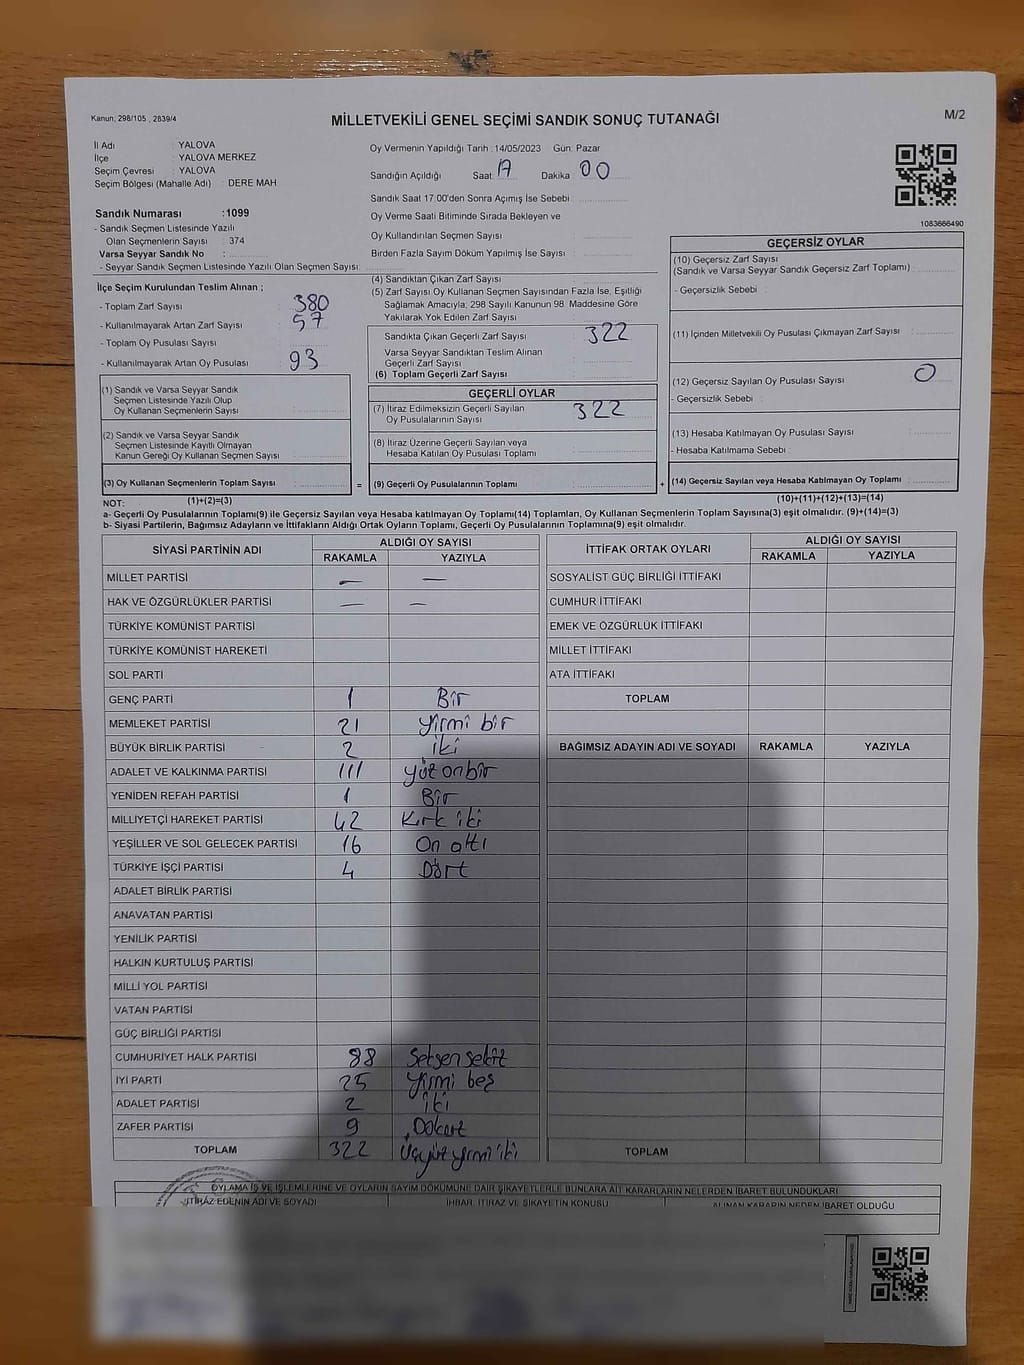 Kanun; 298/105 , 2839/4
MİLLETVEKİLİ GENEL SEÇİMİ SANDIK SONUÇ TUTANAĞI
M/2
İl Adı : YALOVA
İlçe : YALOVA MERKEZ
Seçim Çevresi : YALOVA
Seçim Bölgesi (Mahalle Adı) : DERE MAH
Sandık Numarası :1099
- Sandık Seçmen Listesinde Yazılı
Olan Seçmenlerin Sayısı : 374
Varsa Seyyar Sandık No :
- Seyyar Sandık Seçmen Listesinde Yazılı Olan Seçmen Sayısı:
İlçe Seçim Kurulundan Teslim Alınan ;
- Toplam Zarf Sayısı : 380
- Kullanılmayarak Artan Zarf Sayısı : 57
- Toplam Oy Pusulası Sayısı :
- Kullanılmayarak Artan Oy Pusulası : 93
(1) Sandık ve Varsa Seyyar Sandık
Seçmen Listesinde Yazılı Olup
Oy Kullanan Seçmenlerin Sayısı :
(2) Sandık ve Varsa Seyyar Sandık
Seçmen Listesinde Kayıtlı Olmayan
Kanun Gereği Oy Kullanan Seçmen Sayısı :
(3) Oy Kullanan Seçmenlerin Toplam Sayısı :
Oy Vermenin Yapıldığı Tarih :14/05/2023 Gün: Pazar
Sandığın Açıldığı Saat: 17 Dakika : 00
Sandık Saat 17:00'den Sonra Açımış İse Sebebi :
Oy Verme Saati Bitiminde Sırada Bekleyen ve
Oy Kullandırılan Seçmen Sayısı :
Birden Fazla Sayım Döküm Yapılmış İse Sayısı :
(4) Sandıktan Çıkan Zarf Sayısı :
(5) Zarf Sayısı Oy Kullanan Seçmen Sayısından Fazla İse, Eşitliği
Sağlamak Amacıyla; 298 Sayılı Kanunun 98. Maddesine Göre
Yakılarak Yok Edilen Zarf Sayısı :
Sandıkta Çıkan Geçerli Zarf Sayısı : 322
Varsa Seyyar Sandıktan Teslim Alınan
Geçerli Zarf Sayısı :
(6) Toplam Geçerli Zarf Sayısı :
GEÇERLİ OYLAR
(7) İtiraz Edilmeksizin Geçerli Sayılan
Oy Pusulalarının Sayısı : 322
(8) İtiraz Üzerine Geçerli Sayılan veya
Hesaba Katılan Oy Pusulası Toplamı :
= (9) Geçerli Oy Pusulalarının Toplamı :
1083666490
GEÇERSİZ OYLAR
(10) Geçersiz Zarf Sayısı
(Sandık ve Varsa Seyyar Sandık Geçersiz Zarf Toplamı) :
- Geçersizlik Sebebi :
(11) İçinden Milletvekili Oy Pusulası Çıkmayan Zarf Sayısı :
(12) Geçersiz Sayılan Oy Pusulası Sayısı : 0
- Geçersizlik Sebebi :
(13) Hesaba Katılmayan Oy Pusulası Sayısı :
- Hesaba Katılmama Sebebi :
+ (14) Geçersiz Sayılan veya Hesaba Katılmayan Oy Toplamı :
NOT: (1)+(2)=(3) (10)+(11)+(12)+(13)=(14)
a- Geçerli Oy Pusulalarının Toplamı(9) ile Geçersiz Sayılan veya Hesaba katılmayan Oy Pusulası Toplamı(14) Toplamları, Oy Kullanan Seçmenlerin Toplam Sayısına(3) eşit olmalıdır. (9)+(14)=(3)
b- Siyasi Partilerin, Bağımsız Adayların ve İttifakların Aldığı Ortak Oyların Toplamı, Geçerli Oy Pusulalarının Toplamına(9) eşit olmalıdır.
SİYASİ PARTİNİN ADI ALDIĞI OY SAYISI
RAKAMLA YAZIYLA
MİLLET PARTİSİ — —
HAK VE ÖZGÜRLÜKLER PARTİSİ — —
TÜRKİYE KOMÜNİST PARTİSİ
TÜRKİYE KOMÜNİST HAREKETİ
SOL PARTİ
GENÇ PARTİ 1 Bir
MEMLEKET PARTİSİ 21 Yirmi bir
BÜYÜK BİRLİK PARTİSİ 2 iki
ADALET VE KALKINMA PARTİSİ 111 yüz onbir
YENİDEN REFAH PARTİSİ 1 Bir
MİLLİYETÇİ HAREKET PARTİSİ 42 Kırk iki
YEŞİLLER VE SOL GELECEK PARTİSİ 16 On altı
TÜRKİYE İŞÇİ PARTİSİ 4 Dört
ADALET BİRLİK PARTİSİ
ANAVATAN PARTİSİ
YENİLİK PARTİSİ
HALKIN KURTULUŞ PARTİSİ
MİLLİ YOL PARTİSİ
VATAN PARTİSİ
GÜÇ BİRLİĞİ PARTİSİ
CUMHURİYET HALK PARTİSİ 88 Seksen sekiz
İYİ PARTİ 25 Yirmi beş
ADALET PARTİSİ 2 iki
ZAFER PARTİSİ 9 Dokuz
TOPLAM 322 Üçyüz yirmi iki
İTTİFAK ORTAK OYLARI ALDIĞI OY SAYISI
RAKAMLA YAZIYLA
SOSYALİST GÜÇ BİRLİĞİ İTTİFAKI
CUMHUR İTTİFAKI
EMEK VE ÖZGÜRLÜK İTTİFAKI
MİLLET İTTİFAKI
ATA İTTİFAKI
TOPLAM
BAĞIMSIZ ADAYIN ADI VE SOYADI RAKAMLA YAZIYLA
TOPLAM
OYLAMA İŞ VE İŞLEMLERİNE VE OYLARIN SAYIM DÖKÜMÜNE DAİR ŞİKAYETLERLE BUNLARA AİT KARARLARIN NELERDEN İBARET BULUNDUKLARI
İTİRAZ EDENİN ADI VE SOYADI İHBAR, İTİRAZ VE ŞİKAYETİN KONUSU ALINAN KARARIN NEDEN İBARET OLDUĞU